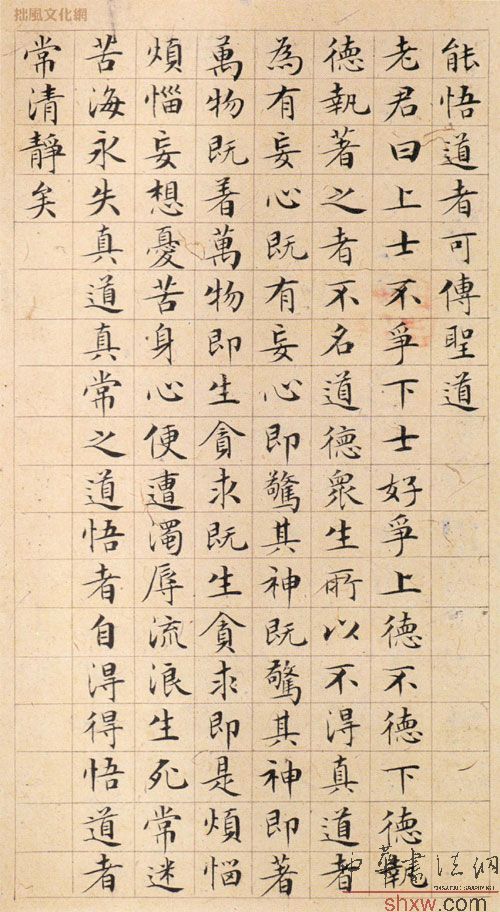 拙風文化網
能悟道者可傳聖道
老君曰上士不爭下士好爭上德不德下德執
德執著之者不名道德眾生所以不得真道者
為有妄心既有妄心即驚其神既驚其神即著
萬物既着萬物即生貪求既生貪求即是煩惱
煩惱妄想憂苦身心便遭濁辱流浪生死常迷
苦海永失真道真常之道悟者自得得悟道者
常清靜矣
中華書法網
shxw.com